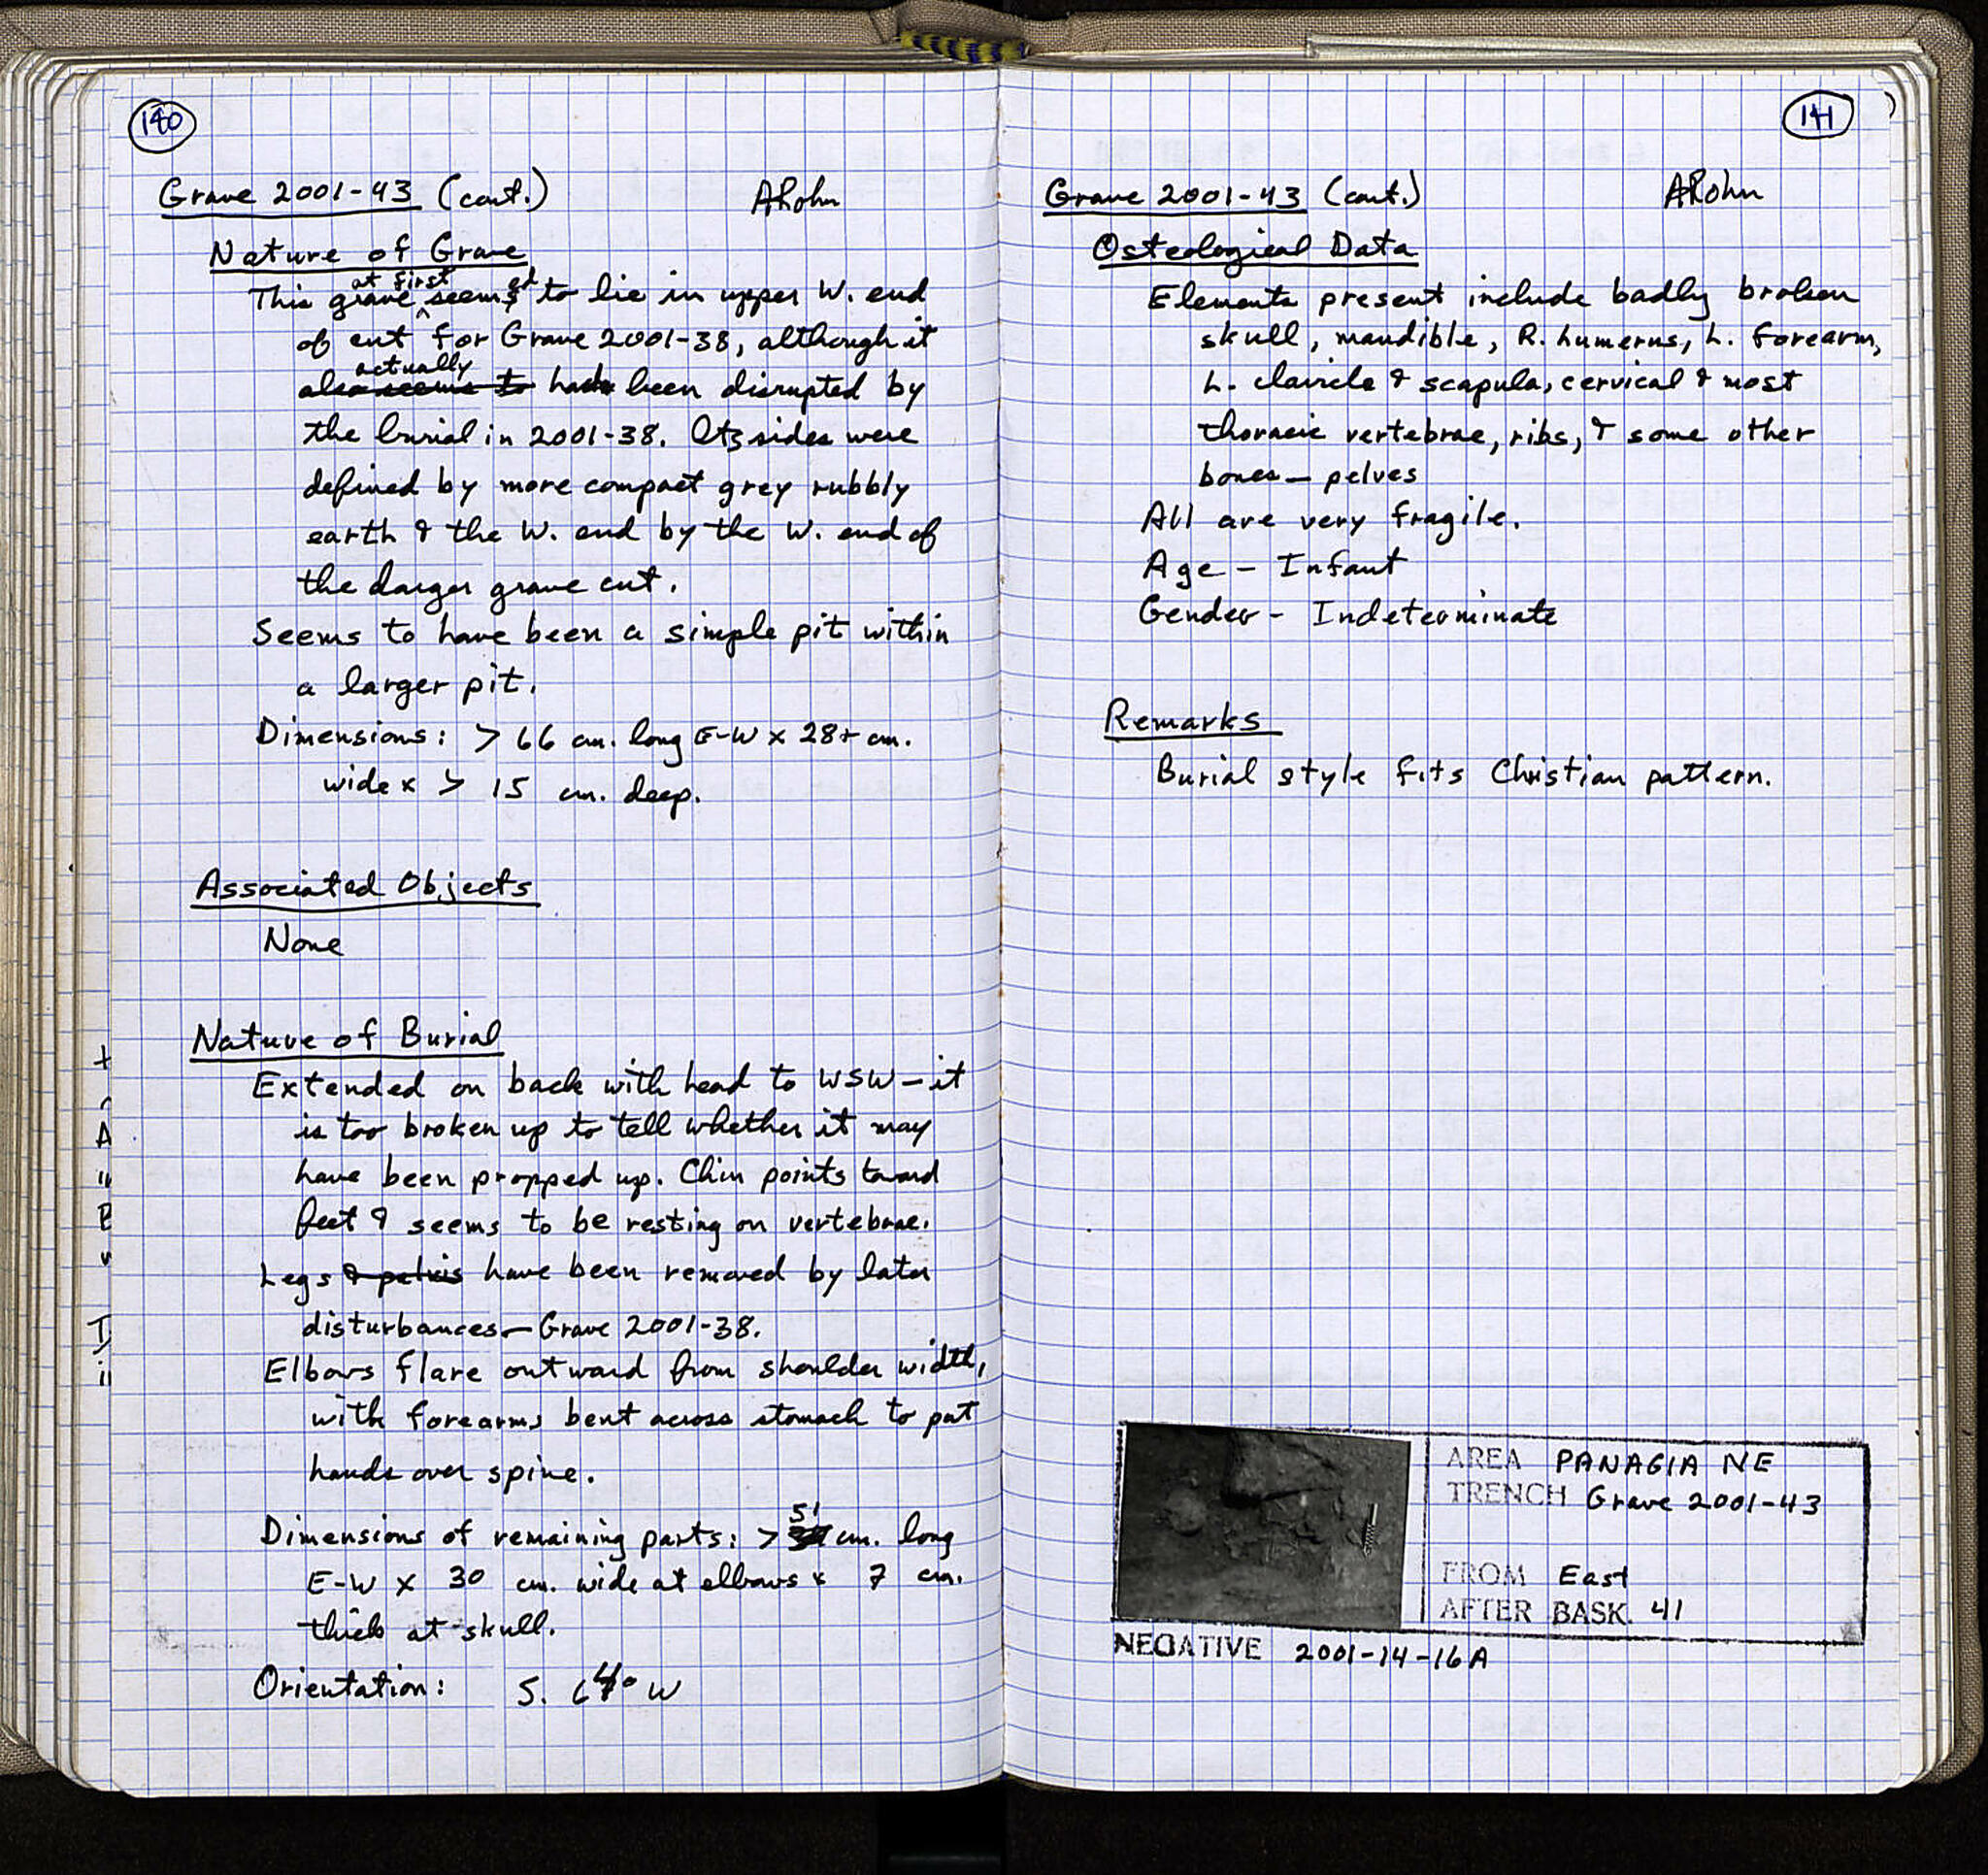 140
Grave 2001-43 (cont.) ARohn
Nature of Grave
This grave at first seemsed to lie in upper W. end
of cut for Grave 2001-38, although it
actually
also seems to had been disrupted by
the burial in 2001-38. Its sides were
defined by more compact grey rubbly
earth & the W. end by the W. end of
the larger grave cut.
Seems to have been a simple pit within
a larger pit.
Dimensions: > 66 cm. long E-W x 28+ cm.
wide x > 15 cm. deep.
Associated Objects
None
Nature of Burial
Extended on back with head to WSW – it
is too broken up to tell whether it may
have been propped up. Chin points toward
feet & seems to be resting on vertebrae.
Legs & pelvis have been removed by later
disturbances – Grave 2001-38.
Elbows flare outward from shoulder width,
with forearms bent across stomach to put
hands over spine.
Dimensions of remaining parts: > 51 cm. long
E-W x 30 cm. wide at elbows x 7 cm.
thick at skull.
Orientation: S. 64° W
141
Grave 2001-43 (cont.) ARohn
Osteological Data
Elements present include badly broken
skull, mandible, R. humerus, L. forearm,
L. clavicle & scapula, cervical & most
thoracic vertebrae, ribs, & some other
bones – pelves
All are very fragile.
Age – Infant
Gender – Indeterminate
Remarks
Burial style fits Christian pattern.
AREA PANAGIA NE
TRENCH Grave 2001-43
FROM East
AFTER BASK. 41
NEGATIVE 2001-14-16A